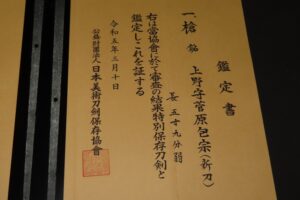 鑑定書
一、槍 銘 上野守菅原包宗(新刀)
長 五十九分弱
右は當協會に於て審査の結果特別保存刀剣と
鑑定しこれを証する
令和五年三月十日
公益財団法人日本美術刀剣保存協會